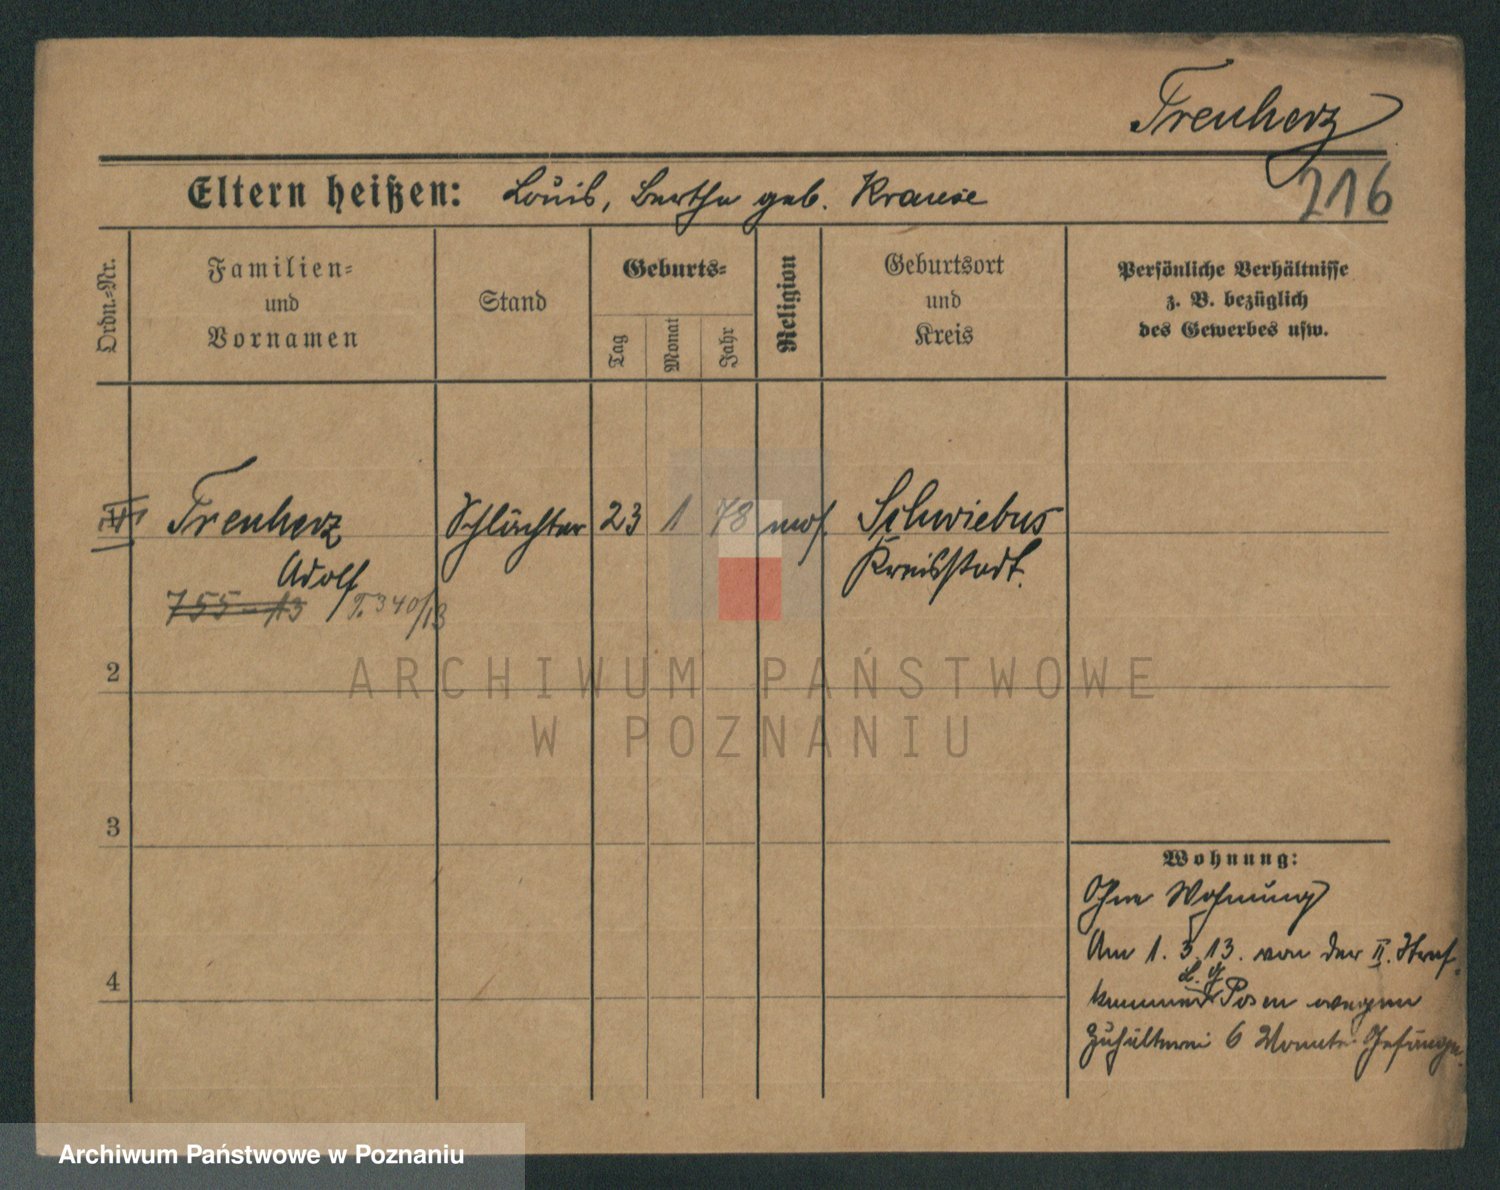 Treuherz
216
Eltern heißen: Louis, Berthe geb. Krause
Ordn.=Nr.
Familien=
und
Vornamen
Stand
Geburts=
Tag
Monat
Jahr
Religion
Geburtsort
und
Kreis
Persönliche Verhältnisse
z. B. bezüglich
des Gewerbes usw.
Treuherz
Adolf
755-13 / T. 340/13
Schlächter
23
1
78
mos.
Schwiebus
Kreisstadt.
2
3
4
Wohnung:
Ohne Wohnung
Am 1. 3. 13. von der II. Straf-
kammer L. G. Posen wegen
Zuhälterei 6 Monate Gefängn.
ARCHIWUM PAŃSTWOWE
W POZNANIU
Archiwum Państwowe w Poznaniu